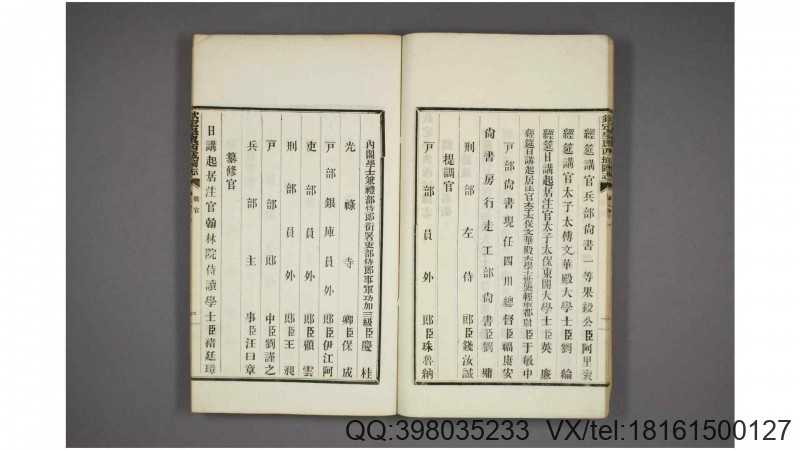 經筵講官兵部尙書一等果毅公臣阿里袞
經筵講官太子太傅文華殿大學士臣劉綸
經筵日講起居注官太子太保東閣大學士臣英廉
經筵日講起居注官太子太保文華殿大學士世襲輕車都尉臣于敏中
戶部尙書現任四川總督臣福康安
尙書房行走工部尙書臣劉墉
刑部左侍郞臣錢汝誠
提調官
戶部員外郞臣珠魯納
內閣學士兼禮部侍郞銜署吏部侍郞事軍功加三級臣慶桂
光祿寺卿臣保成
戶部銀庫員外郞臣伊江阿
吏部員外郞臣顧雲
刑部員外郞臣王昶
戶部郞中臣劉謹之
兵部主事臣汪日章
纂修官
日講起居注官翰林院侍讀學士臣褚廷璋
職官
QQ:398035233 VX/tel:18161500127